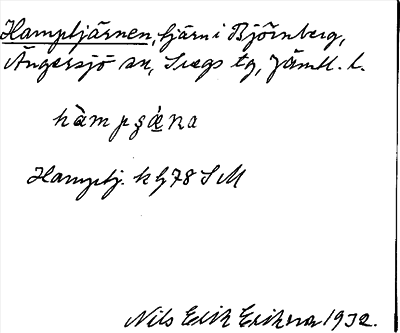 Hamptjärnen, tjärn i Björnberg,
Ängersjö sn, Svegs tg, Jämtl. l.
hàmpsɶ̀ṇa
Hamptj. kbl 78 S M
Nils Erik Erikson 1932.